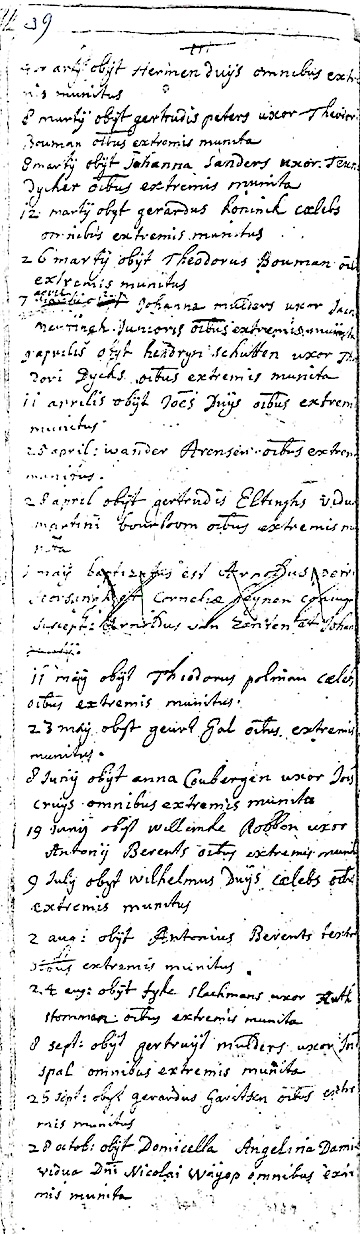 39
martij obijt Hermen Duijs omnibus extre
mis munitus
8 martij obijt gertrudis peters uxor Theodor
Bouman oibus extremis munita
8 martij obijt Johanna Sanders uxor
Dycker oibus extremis munita
12 martij obijt gerardus koninck cælebs
omnibus extremis munitus
26 martij obijt Theodorus Bouman oib
extremis munitus
7 april Johanna mulders uxor
Junioris oibus extremis munita
aprilis obijt hendryn schutten uxor The
dori Dycks oibus extremis munita
11 aprilis obijt Joes Duijs oibus extrem
munitus
25 april: wander Arensen oibus extrem
munitus
28 april obijt gertrudis Eltinghs vidua
martini oibus extremis mu
nita
maij baptizatus est Arnoldus
et Corneliæ conjug
suscept: Arnoldus van et Johan
11 maij obijt Theodorus polman cæleb
oibus extremis munitus
23 maij obijt geurt Gal oibus extremis
munitus
8 Junij obijt anna Coubergen uxor Jois
cruijs omnibus extremis munita
19 Junij obijt willemke Robbon uxor
Antonij Berents oibus extremis munita
9 Julij obijt wilhelmus Duijs cælebs oibus
extremis munitus
2 aug: obijt Antonius Berents
oibus extremis munitus
24 aug: obijt fyke slachmans uxor Ruth
stomman oibus extremis munita
8 sept: obijt gertruijt mulders uxor
spal omnibus extremis munita
25 sept: obijt gerardus Garitsen oibus extre
mis munitus
28 octob: obijt Domicella Angelina
vidua Dni Nicolai Wayop omnibus extre
mis munita